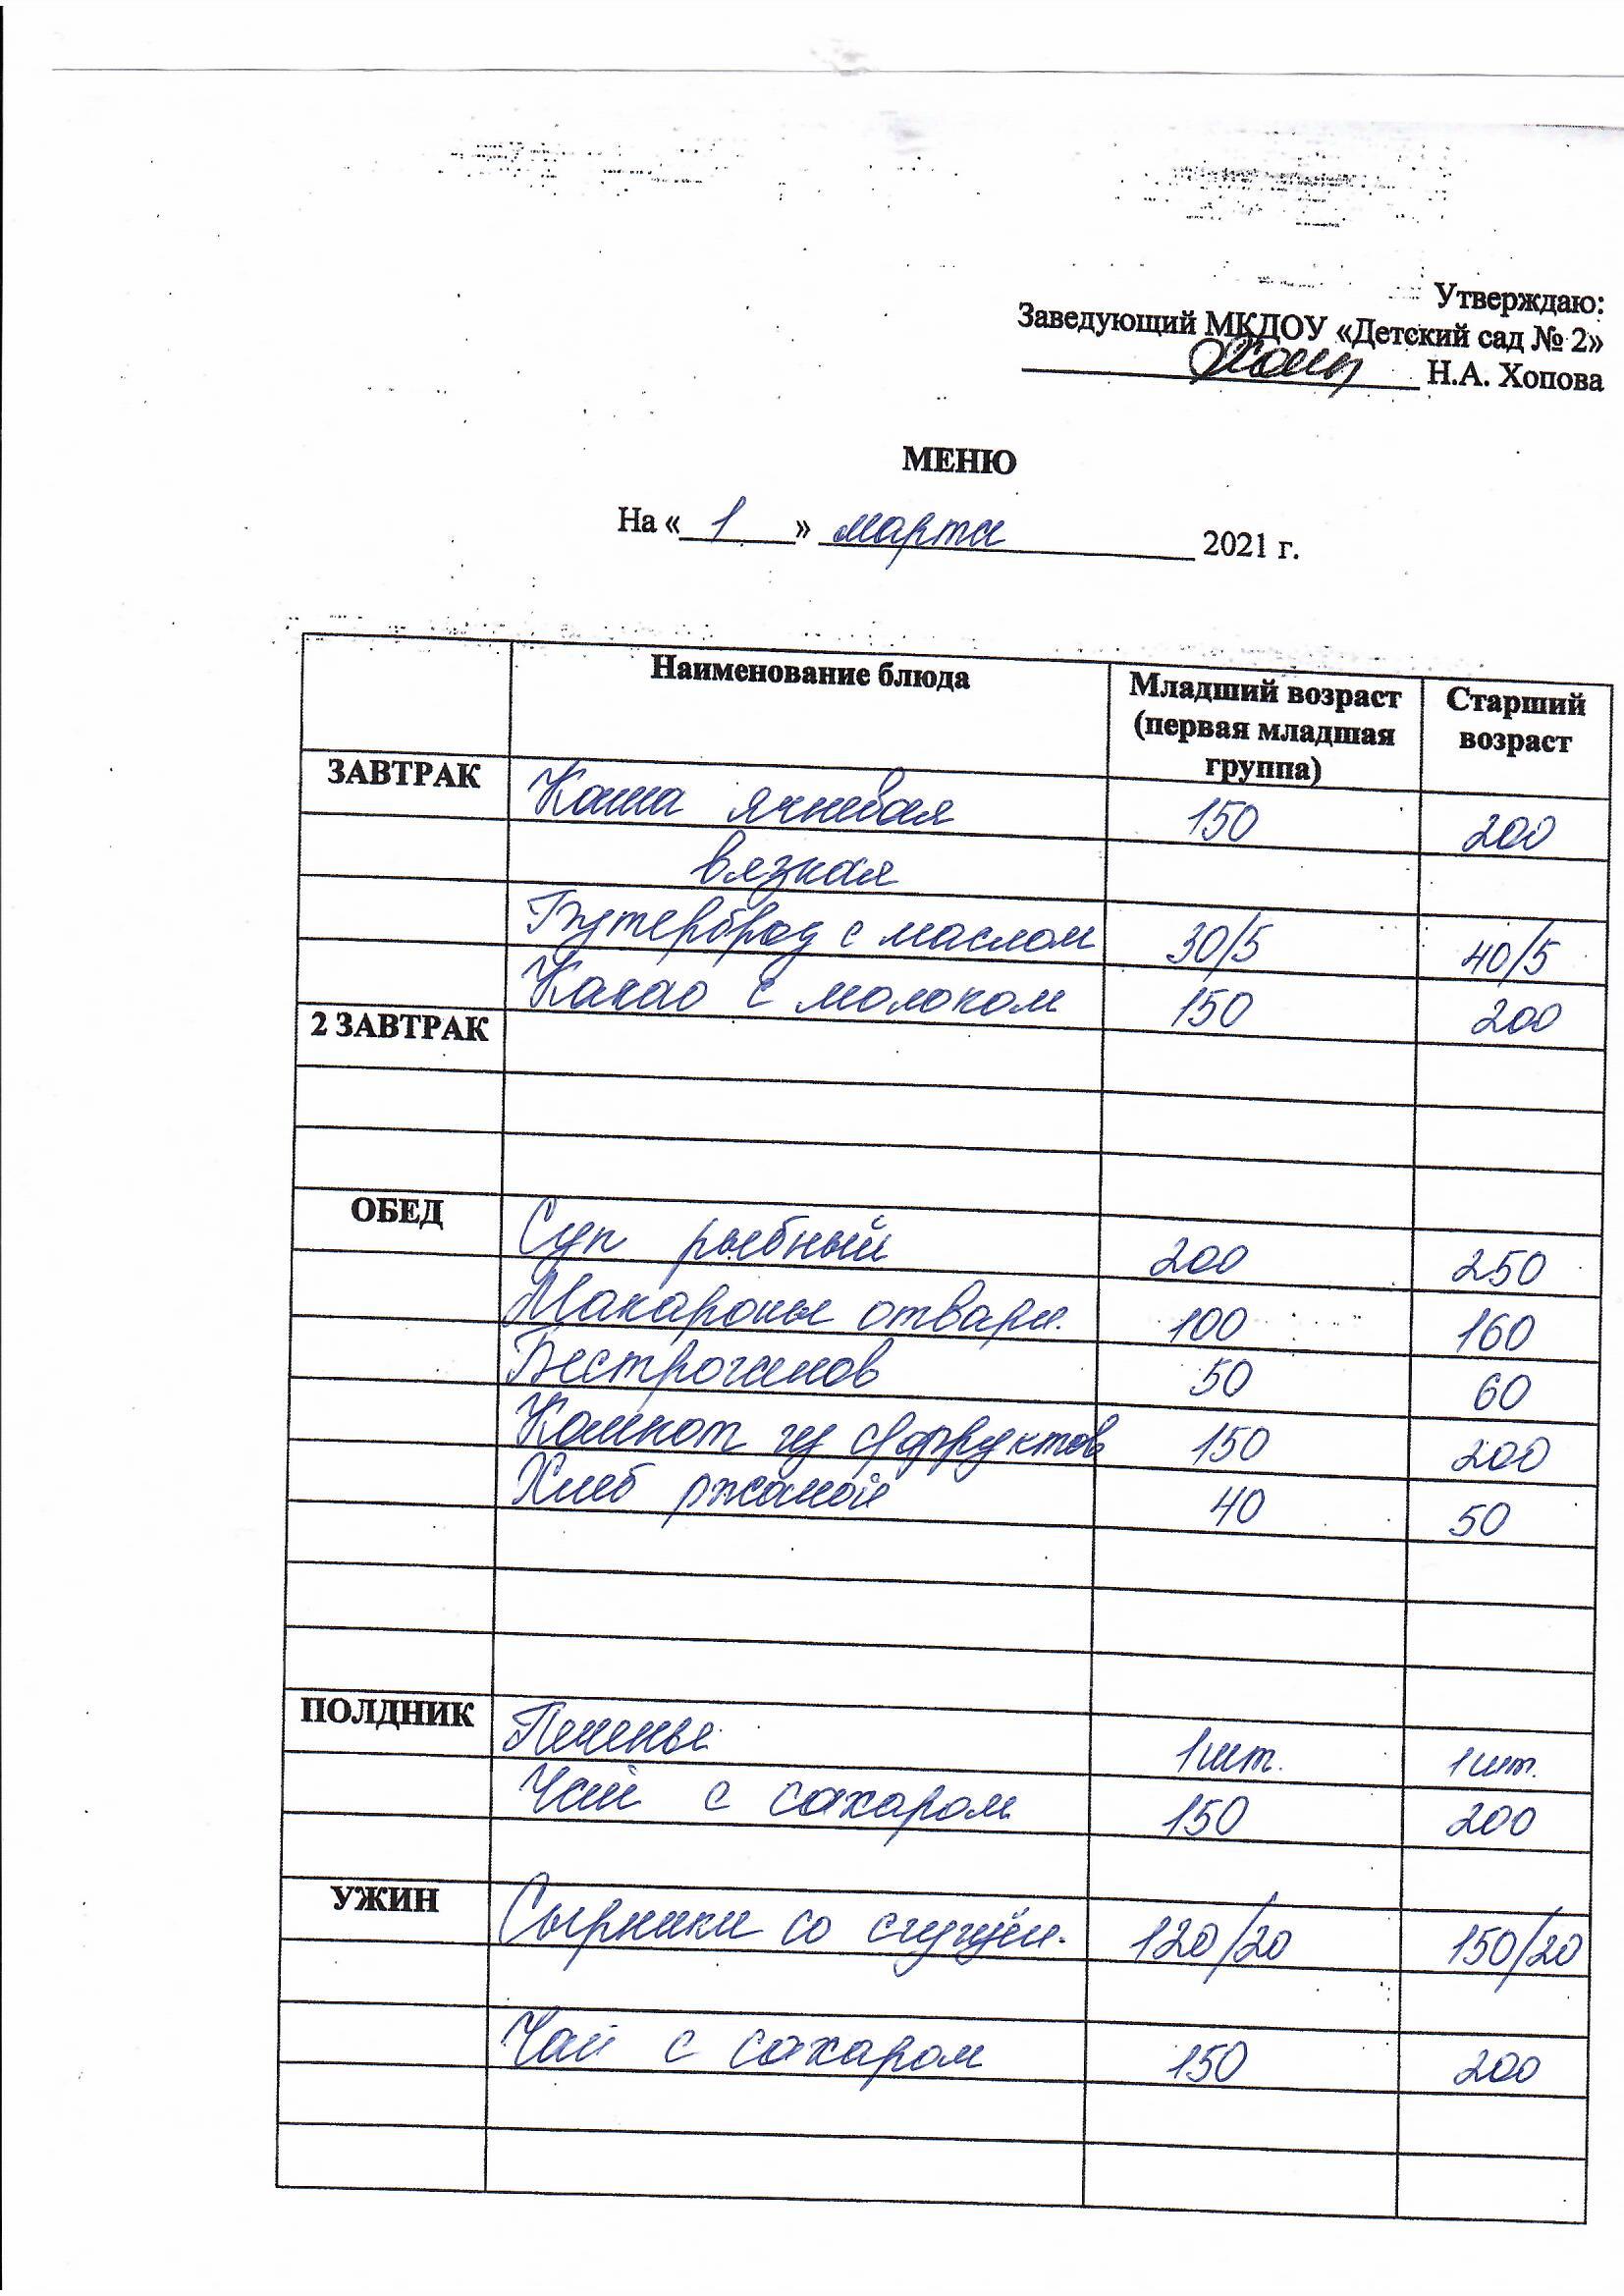 Утверждаю:
Заведующий МКДОУ «Детский сад № 2»
Н.А. Хопова
МЕНЮ
На « 1 » марта 2021 г.
Наименование блюда Младший возраст (первая младшая группа) Старший возраст
ЗАВТРАК Каша ячневая 150 200
вязкая
Бутерброд с маслом 30/5 40/5
Какао с молоком 150 200
2 ЗАВТРАК
ОБЕД Суп рыбный 200 250
Макароны отварн. 100 160
Бестрогинов 50 60
Компот из с/фруктов 150 200
Хлеб ржаной 40 50
ПОЛДНИК Печенье 1шт. 1шт.
Чай с сахаром 150 200
УЖИН Сырники со сгущён. 120/20 150/20
Чай с сахаром 150 200